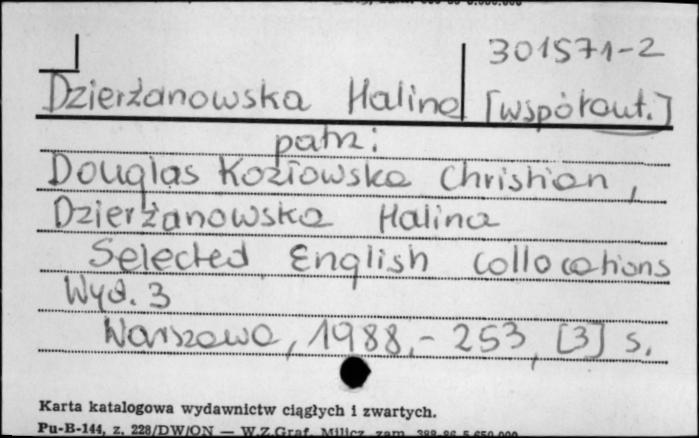 301571-2
Dzierżanowska Halina [współaut.]
patrz:
Douglas Kozłowska Christian,
Dzierżanowska Halina
Selected English collocations
Wyd. 3
Warszawa, 1988.- 253, [3] s.
Karta katalogowa wydawnictw ciągłych i zwartych.
Pu-B-144, z. 228/DW/ON — W.Z.Graf. Milicz, zam.